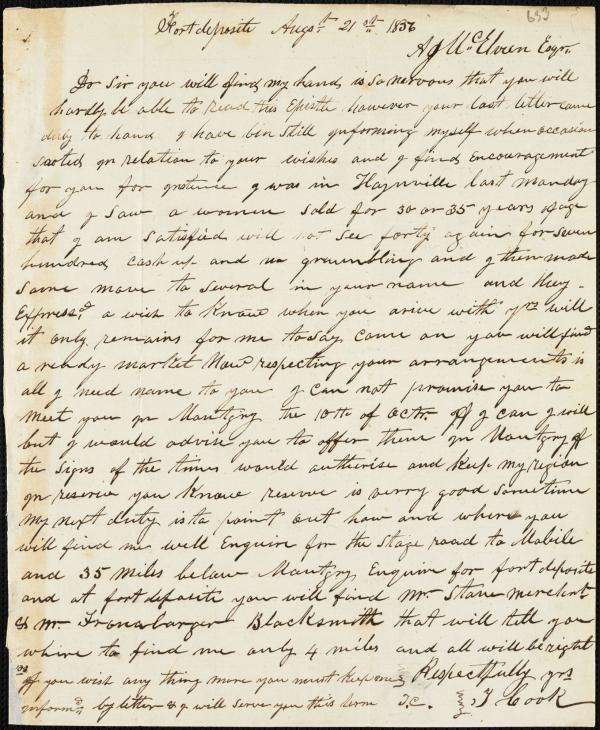 633
Fort deposite Augst. 21st. 1836
A J McElveen Esqr.
Do Sir you will find my hand is so nervous that you will
hardly be able to read this Epistle however your last letter came
duly to hand I have bin still informing myself when occasion
suoted in relation to your wishes and I find Encouragement
for you for instence I was in Haynville last Monday
and I saw a women sold for 30 or 35 years of age
that I am satisfied will not see forty again for seven
hundred cash up and no grumbling and I then made
same move to several in your name and they
Expressed a wish to know when you arive with yrs will
it only remains for me to say come on you will find
a ready market Now respecting your arrangements is
all I need name to you I can not promise you to
meet you in Montgry the 10th of Octr. If I can I will
but I would advise you to offer them in Montgry if
the signs of the times would autherise and keep my region
in reserve you know reserve is verry good sometime
My next duty is to point out how and where you
will find me will Enquire for the Stage road to Mobile
and 35 miles below Montgry Enquire for fort deposite
and at fort deposite you will find Mr. Stone merchent
& Mr. Fronabarger Blacksmith that will tell you
where to find me only 4 miles and all will be right
If you wish any thing more you must keep me Respectfully yrs
informd. by letter & I will serve you this term J.C. J Cook